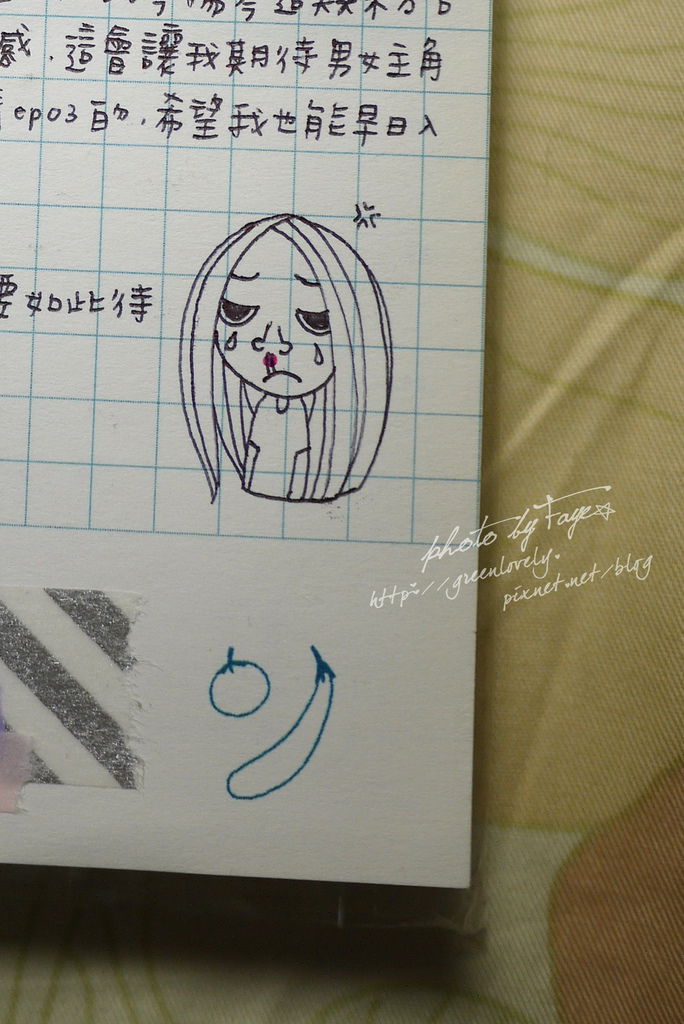 感.這會讓我期待男女主角
ep03 的.希望我也能早日入
要如此待
photo by Faye☆
http://greenlovely.
pixnet.net/blog